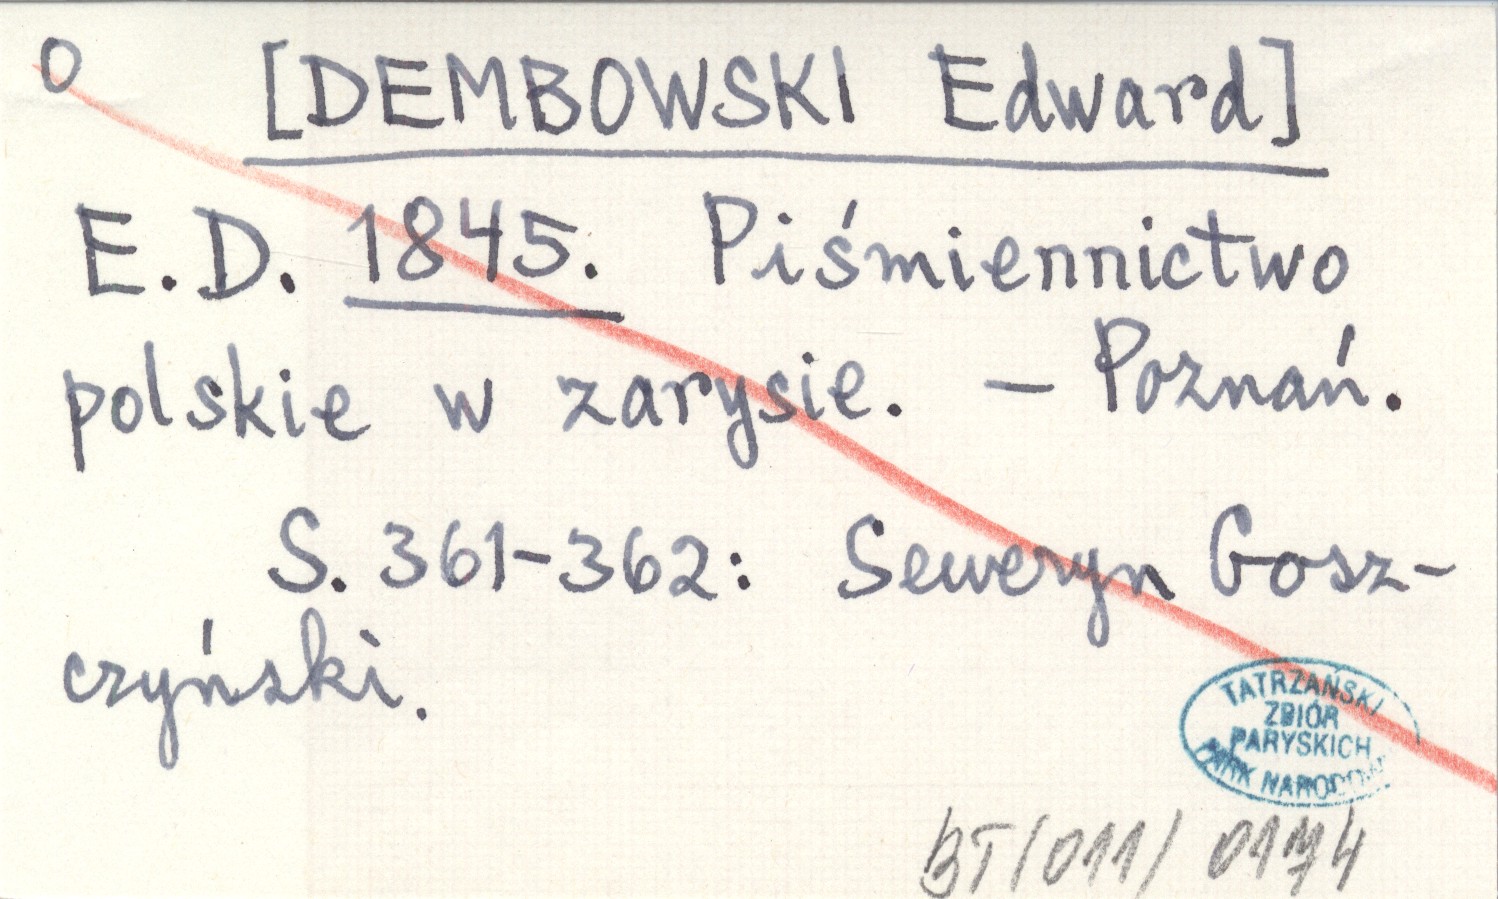 O
[DEMBOWSKI Edward]
E.D. 1845. Piśmiennictwo
polskie w zarysie. – Poznań.
S. 361-362: Seweryn Gosz-
czyński.
TATRZAŃSKI
ZBIÓR
PARYSKICH
PARK NARODOWY
BT/011/